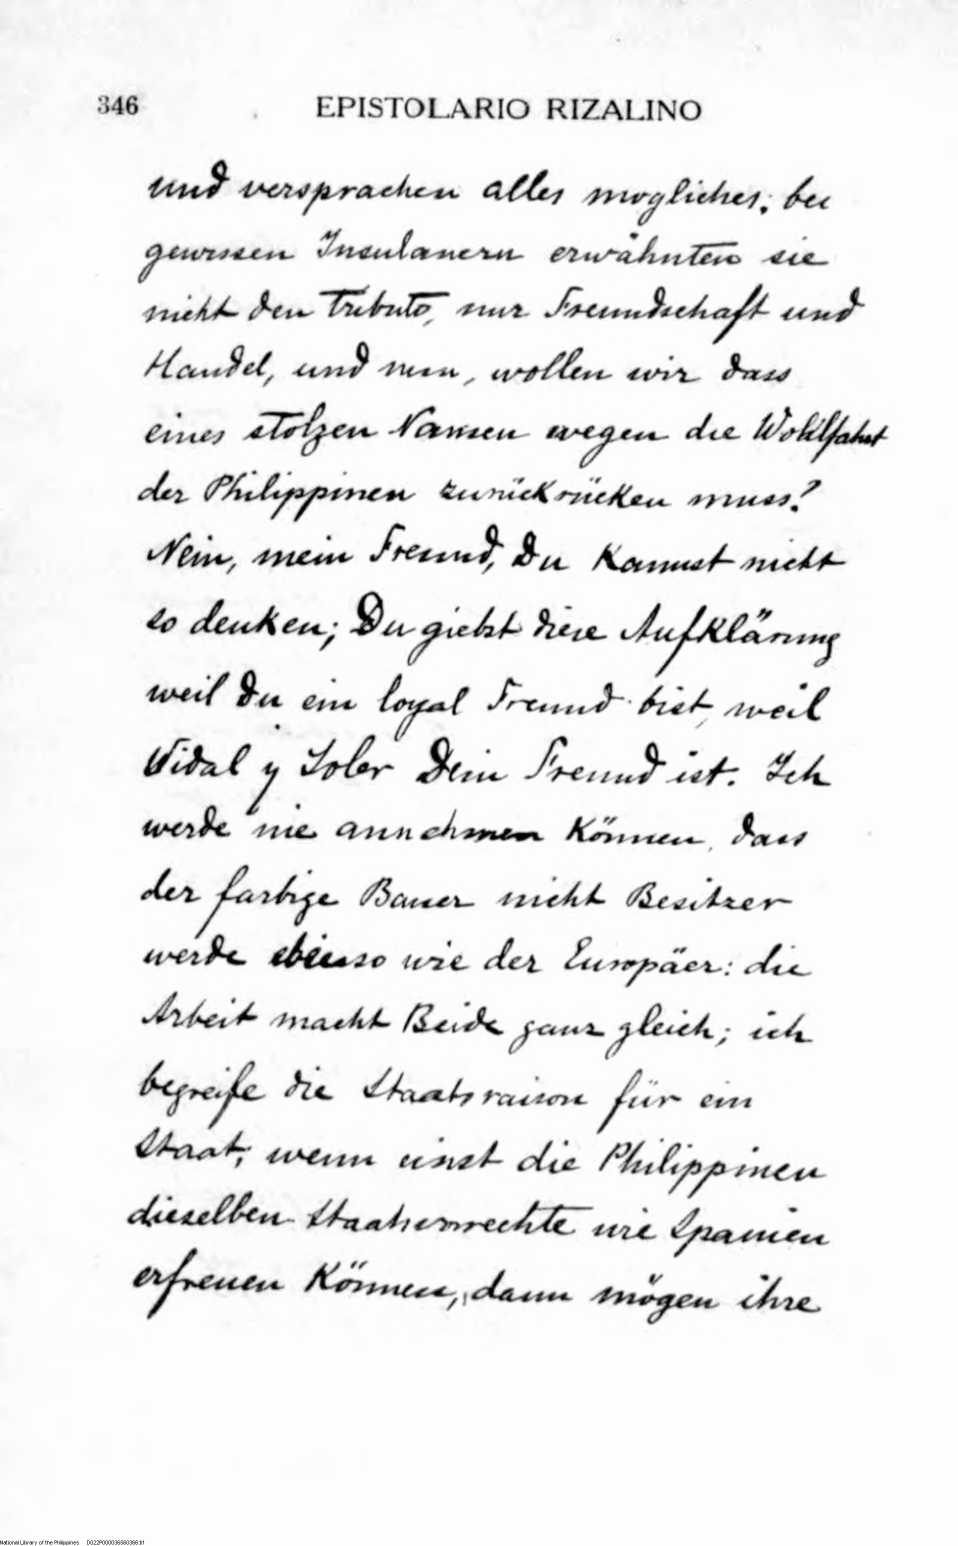 346 EPISTOLARIO RIZALINO
und versprachen alles mogliches; bei
gewissen Insulanern erwähnten sie
nicht den tributo, nur Freundschaft und
Handel, und nun, wollen wir dass
eines stolzen Namen wegen die Wohlfahrt
der Philippinen zurückrücken muss?
Nein, mein Freund, Du kannst nicht
so denken; Du giebst diese Aufklärung
weil Du ein loyal Freund bist, weil
Vidal y Soler Dein Freund ist. Ich
werde nie annehmen können, dass
der farbige Bauer nicht Besitzer
werde ebenso wie der Europäer: die
Arbeit macht Beide ganz gleich; ich
begreife die Staatsraison für ein
Staat; wenn einst die Philippinen
dieselben wie Spanien
erfreuen können, dann mögen ihre
National Library of the Philippines